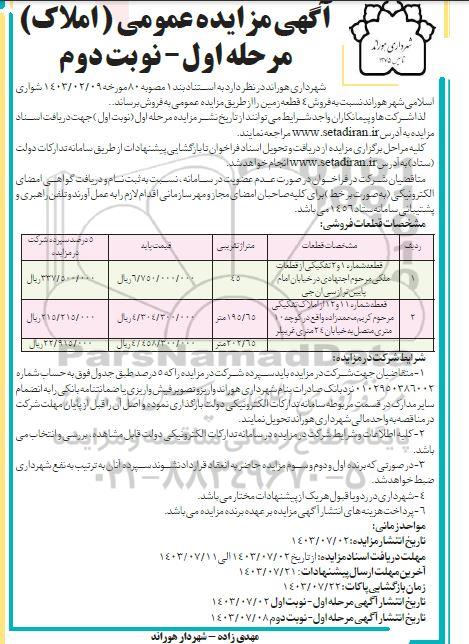 آگهی مزایده عمومی (املاک)
مرحله اول - نوبت دوم
شهرداری هوراند
تاسیس ۱۳۷۵
شهرداری هوراند در نظر دارد به استناد بند ۱ مصوبه ۸۰ مورخه ۱۴۰۳/۰۲/۰۹ شورای
اسلامی شهر هوراند نسبت به فروش ۴ قطعه زمین را از طریق مزایده عمومی به فروش برساند..
لذا شرکت ها و پیمانکاران واجد شرایط می توانند از تاریخ نشر مزایده مرحله اول (نوبت اول) جهت دریافت اسناد
مزایده به آدرس www.setadiran.ir مراجعه نمایند.
کلیه مراحل برگزاری مزایده از دریافت و تحویل اسناد فراخوان تا بازگشایی پیشنهادات از طریق سامانه تدارکات دولت
(ستاد) به آدرس www.setadiran.ir انجام خواهد شد.
متقاضیان شرکت در فراخوان در صورت عدم عضویت در سامانه، نسبت به ثبت نام و دریافت گواهی امضای
الکترونیکی (به صورت بر خط) برای کلیه صاحبان امضای مجاز و مهر سازمانی اقدام لازم را به عمل آورند و تلفن راهبری و
پشتیبانی سامانه ستاد ۱۴۵۶ می باشد.
مشخصات قطعات فروشی:
ردیف مشخصات قطعات متراژ تقریبی قیمت پایه ۵ درصد سپرده شرکت در مزایده
۱ قطعه شماره ۱ و ۲ تفکیکی از قطعات ملکی مرحوم اجتهادی در خیابان امام پایین تر از سی ان جی ۴۵ ۶/۷۵۰/۰۰۰/۰۰۰ ریال ۳۳۷/۵۰۰/۰۰۰ ریال
۲ قطعه شماره ۱۱ و ۱۲ از املاک تفکیکی مرحوم کریم محمدزاده واقع در کوچه ۱۰ متری متصل به خیابان ۲۴ متری غربیلر ۱۹۵/۶۵ متر ۴/۳۰۴/۳۰۰/۰۰۰ ریال ۲۱۵/۲۱۵/۰۰۰ ریال
۲۰۲/۶۵ متر ۴/۴۵۸/۳۰۰/۰۰۰ ریال ۲۲/۹۱۵/۰۰۰ ریال
شرایط شرکت در مزایده:
۱- متقاضیان جهت شرکت در مزایده باید سپرده شرکت در مزایده را که ۵ درصد طبق جدول فوق به حساب شماره
۰۱۰۲۹۵۰۳۸۶۰۰۲ نزد بانک صادرات بنام شهرداری هوراند واریز و تصویر فیش واریزی یا ضمانتنامه بانکی را به انضمام
سایر مدارک در قسمت مربوطه سامانه تدارکات الکترونیکی دولت بارگذاری نموده و اصل آن را قبل از پایان مهلت شرکت
در مناقصه به واحد مالی شهرداری هوراند تحویل نمایند.
۲- کلیه اطلاعات و شرایط شرکت در مزایده در سامانه تدارکات الکترونیکی دولت قابل مشاهده، بررسی و انتخاب می
باشد.
۳- در صورتی که برنده اول و دوم و سوم مزایده حاضر به انعقاد قرارداد نشوند سپرده آنان به ترتیب به نفع شهرداری
ضبط خواهد شد.
۴- شهرداری در رد و یا قبول هر یک از پیشنهادات مختار می باشد.
۶- پرداخت هزینه های انتشار آگهی مزایده بر عهده برنده مزایده می باشد.
مواعد زمانی:
تاریخ انتشار مزایده: ۱۴۰۳/۰۷/۰۲
مهلت دریافت اسناد مزایده: از تاریخ ۱۴۰۳/۰۷/۰۲ الی ۱۴۰۳/۰۷/۱۱
آخرین مهلت ارسال پیشنهادات: ۱۴۰۳/۰۷/۲۱
زمان بازگشایی پاکات: ۱۴۰۳/۰۷/۲۲
تاریخ انتشار آگهی مرحله اول - نوبت اول ۱۴۰۳/۰۷/۰۲
تاریخ انتشار آگهی مرحله اول - نوبت دوم ۱۴۰۳/۰۷/۰۸
مهدی زاده - شهردار هوراند
ParsNamadData
۰۲۱-۸۸۳۴۹۶۷۰-۵